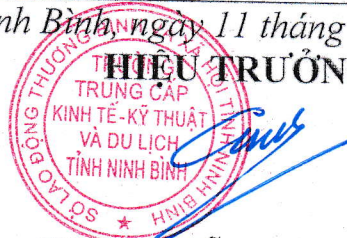 nh Bình, ngày 11 tháng
HIỆU TRƯỞN
SỞ LAO ĐỘNG THƯƠNG BINH VÀ XÃ HỘI TỈNH NINH BÌNH
TRƯỜNG
TRUNG CẤP
KINH TẾ-KỸ THUẬT
VÀ DU LỊCH
TỈNH NINH BÌNH